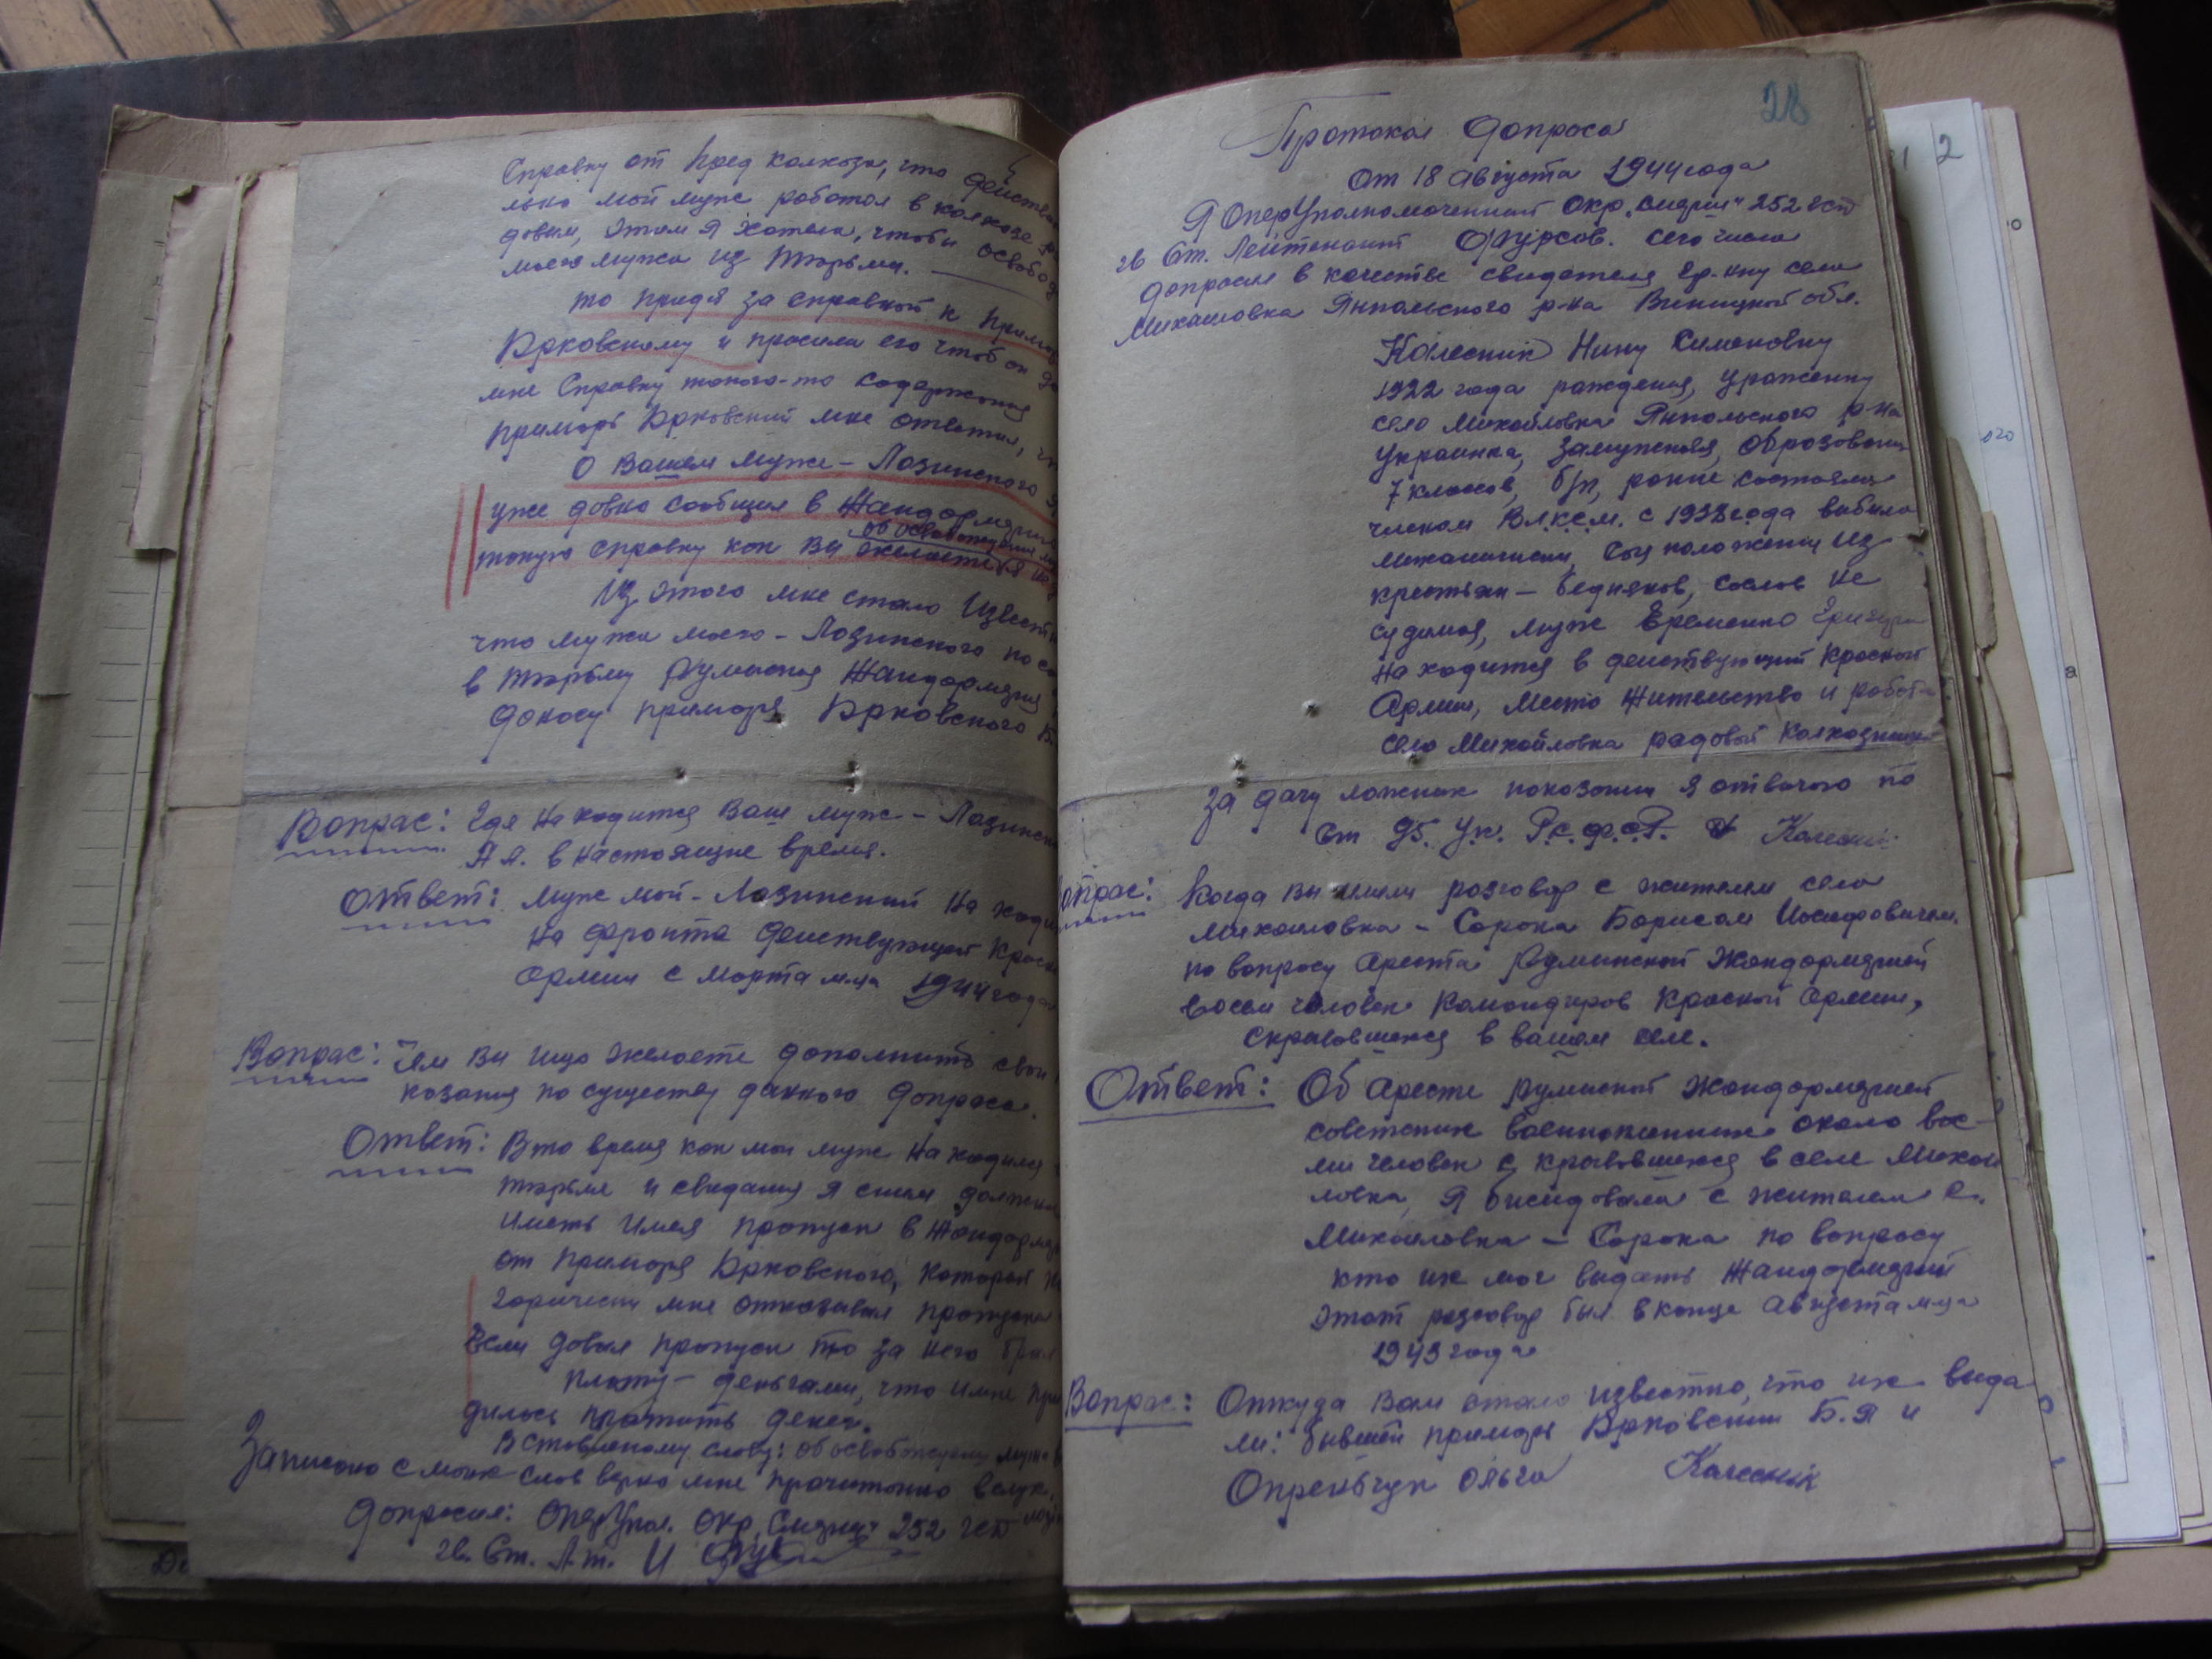 Справку от Пред колхоза, что действи
льно мой муж работал в колхозе
довым, этим я хотела, чтобы освобод
моего мужа из тюрьмы.
то придя за справкой к Примар
Юрковскому и просила его чтоб он да
мне Справку такого-то содержания
примарь Юрковский мне ответил,
О Вашем муже - Лозинского я
уже довно сообщил в Жандормерию
об освобождении му
такую справку как Вы желаете я не
Из этого мне стало Извест
что мужа моего - Лозинского поса
в тюрьму румынская Жандормерия
доносу примаря Юрковского Б.
Вопрос: Где находится Ваш муж - Лозинск
А Л. в настоящие время.
Ответ: Муж мой - Лозинский находи
на фронте действующей Красн
армии с марта м-ца 1944 года
Вопрос: Чем вы ищо желаете дополнить свои
казания по существу данного допроса.
Ответ: В то время как мой муж находился
тюрьме и свидания я с ним должна
иметь имея пропуск в Жандорме
от примаря Юрковского, который ка
горически мне отказывал пропуска
Если довал пропуск то за него брал
плату - деньгами, что и мне при
дилось платить денег.
Вставленому слову: об освобождении мужа
Записано с моих слов верно мне прочитано вслух.
Допросил: ОперУпол. ОКР "Смерш" 252
гв. Ст. Л-т. И
28
Протокол допроса
от 18 августа 1944 года
Я ОперУполномоченный ОКР "Смерш" 252
гв Ст. Лейтенант Фурсов. сего числа
допросил в качестве свидателя гр-нку село
Михайловка Ямпольского р-на Виницкой обл.
Колесник Нину Симоновну
1922 года рождения, Уроженку
село Михайловка Ямпольского р-на
Украинка, замужняя, образование
7 классов, б/п, ранее состояла
членом В.Л.К.С.М. с 1938 года выбыла
механически, соц положения из
крестьян - бедняков, со слов не
судимая, муж Еременко Григорий
находится в действующий Красной
Армии, Место Жительство и работа
село Михайловка радовой Колхозницей
За дачу ложных показании я отвечаю по
ст 95. У.К. Р.С.Ф.С.Р. Колесник
Вопрос: Когда вы имели розговор с жителем село
Михайловка - Сорока Борисом Иосифовичем.
по вопросу ареста Румынской Жандормерией
восем человек Командиров Красной армии,
скрывовшихся в вашем селе.
Ответ: Об аресте румынской Жандормерией
советских военнопленных около вос-
ми человек скрывовшихся в селе Михай
ловка, я бисидовала с жителем с.
Михайловка - Сорока по вопросу
кто их мог выдать Жандормерии
Этот розговор был в конце августа м-ца
1943 года
Вопрос: Откуда Вам стало известно, что их выда
ли: бывший примарь Юрковский Б.Я и
Опренчук Ольга Колесник